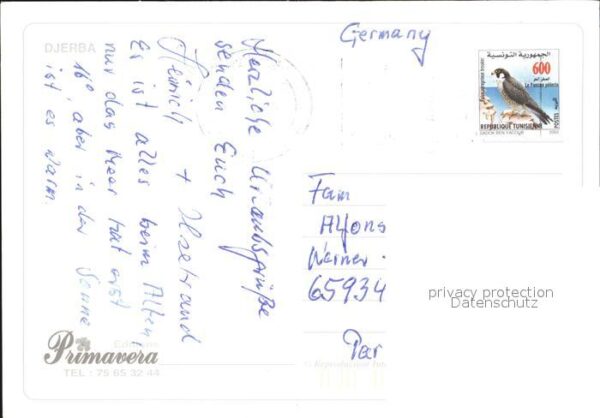 DJERBA
Germany
الجمهورية التونسية
600
Le Faucon pélerin
REPUBLIQUE TUNISIENNE
Herzliche Urlaubsgrüße
senden Euch
Heinrich + Ilsetraud
Es ist alles beim Alten,
nur das Meer hat erst
16°, aber in der Sonne
ist es warm.
Fam
Alfons
Werner
65934
privacy protection
Datenschutz
Editions
Primavera
TEL : 75 65 32 44